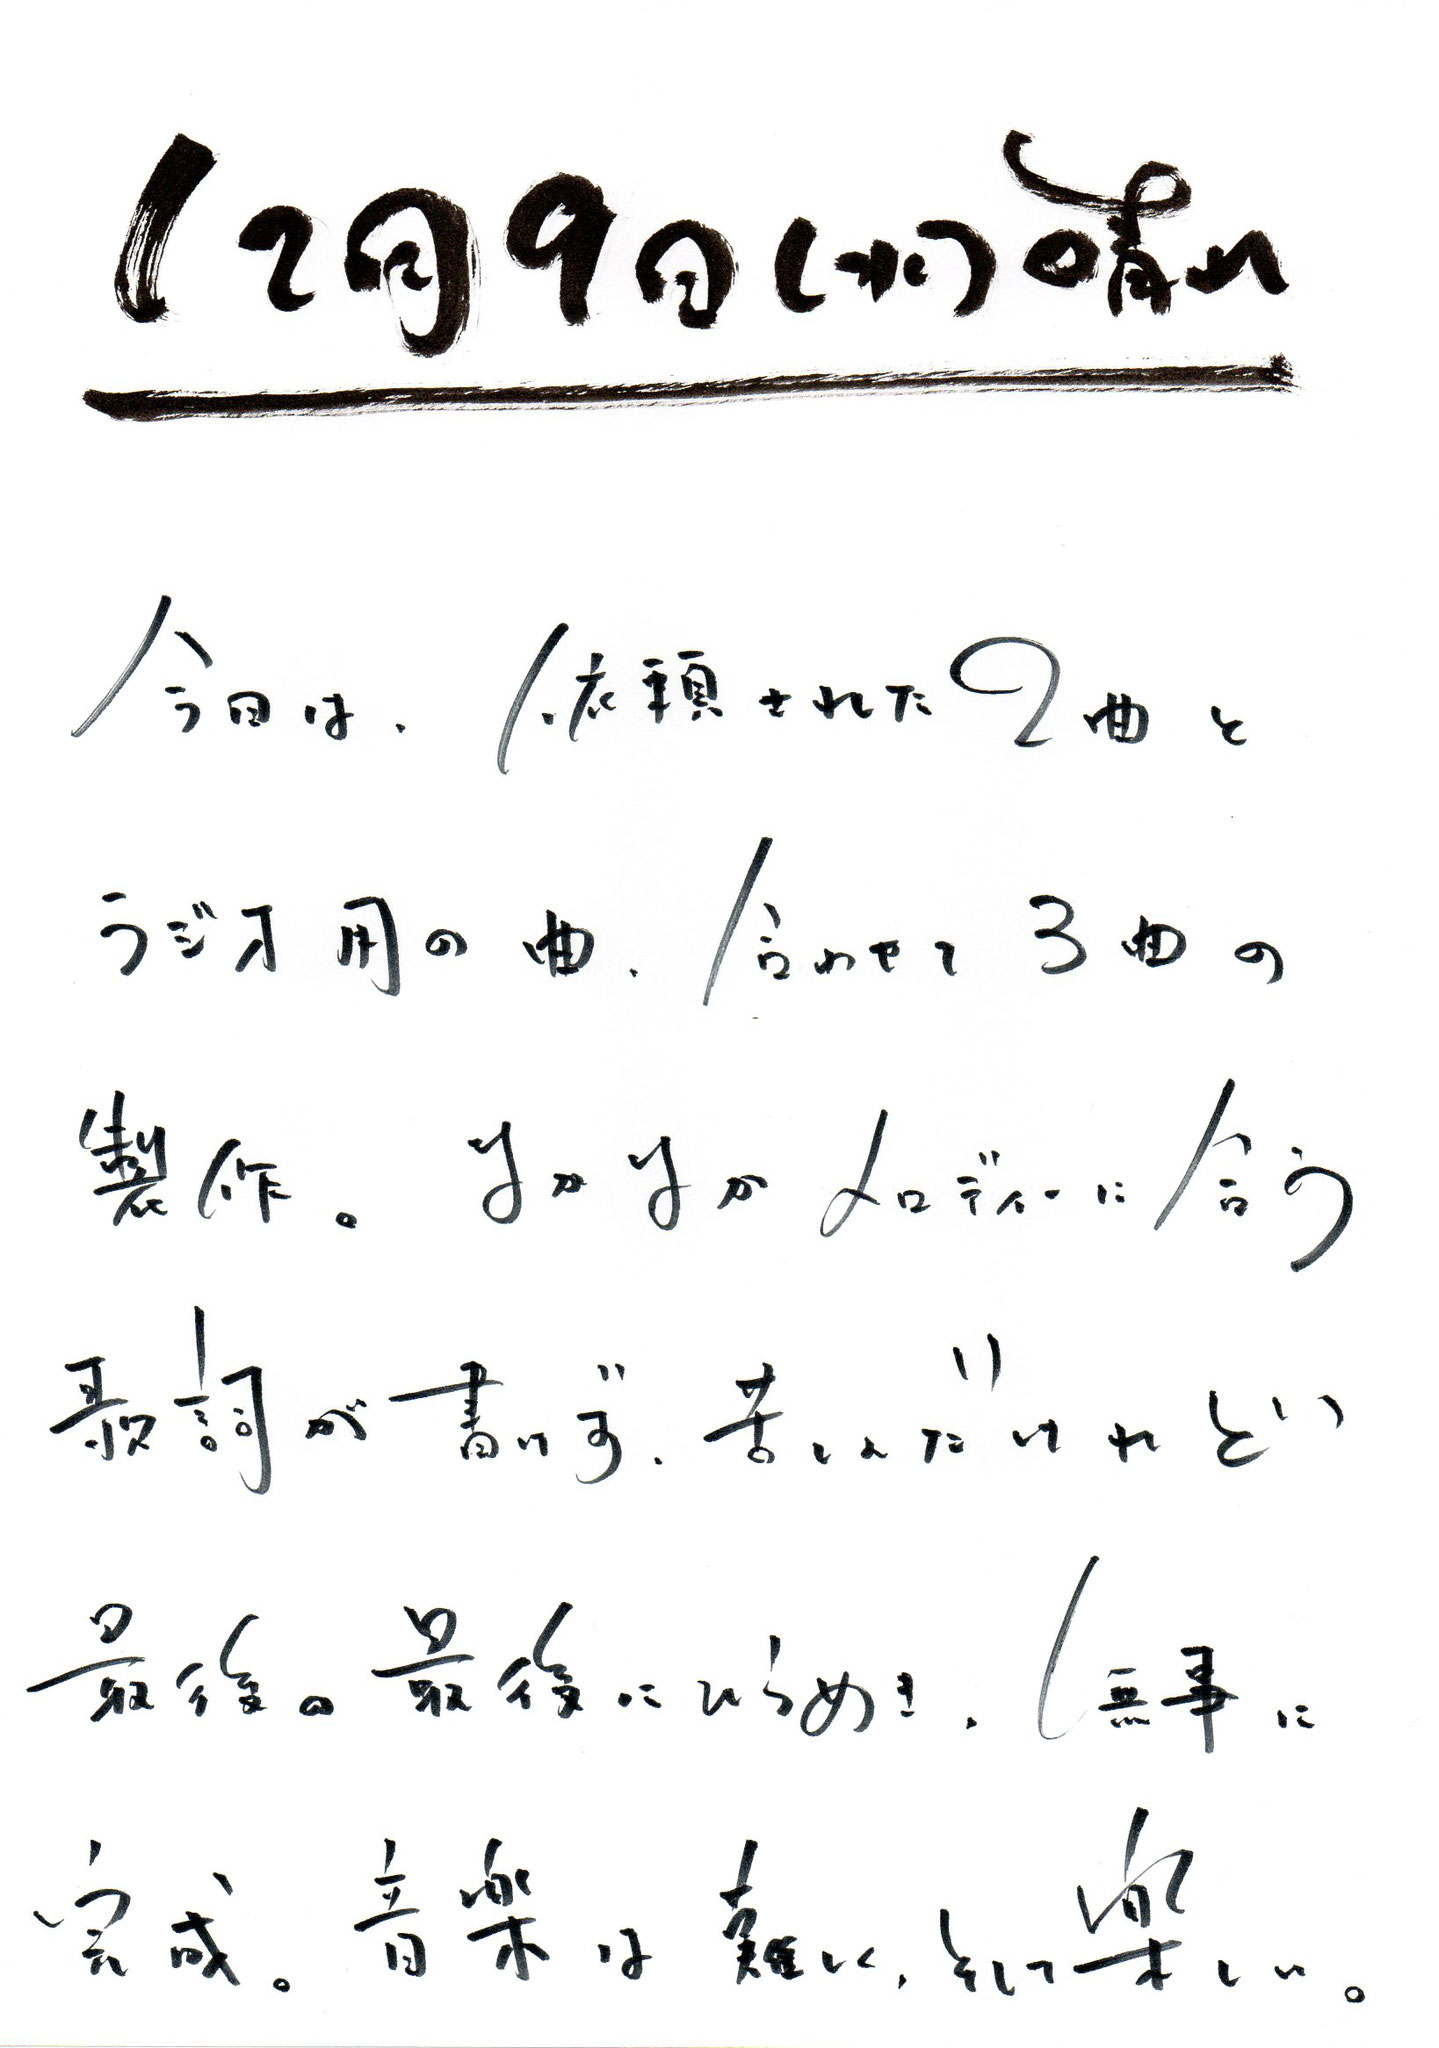 12月9日(水)晴れ
今日は、依頼された2曲と
ラジオ用の曲、合わせて3曲の
製作。なかなかメロディーに合う
歌詞が書けず、苦しんだけれど
最後の最後にひらめき、無事に
完成。音楽は難しく、そして楽しい。